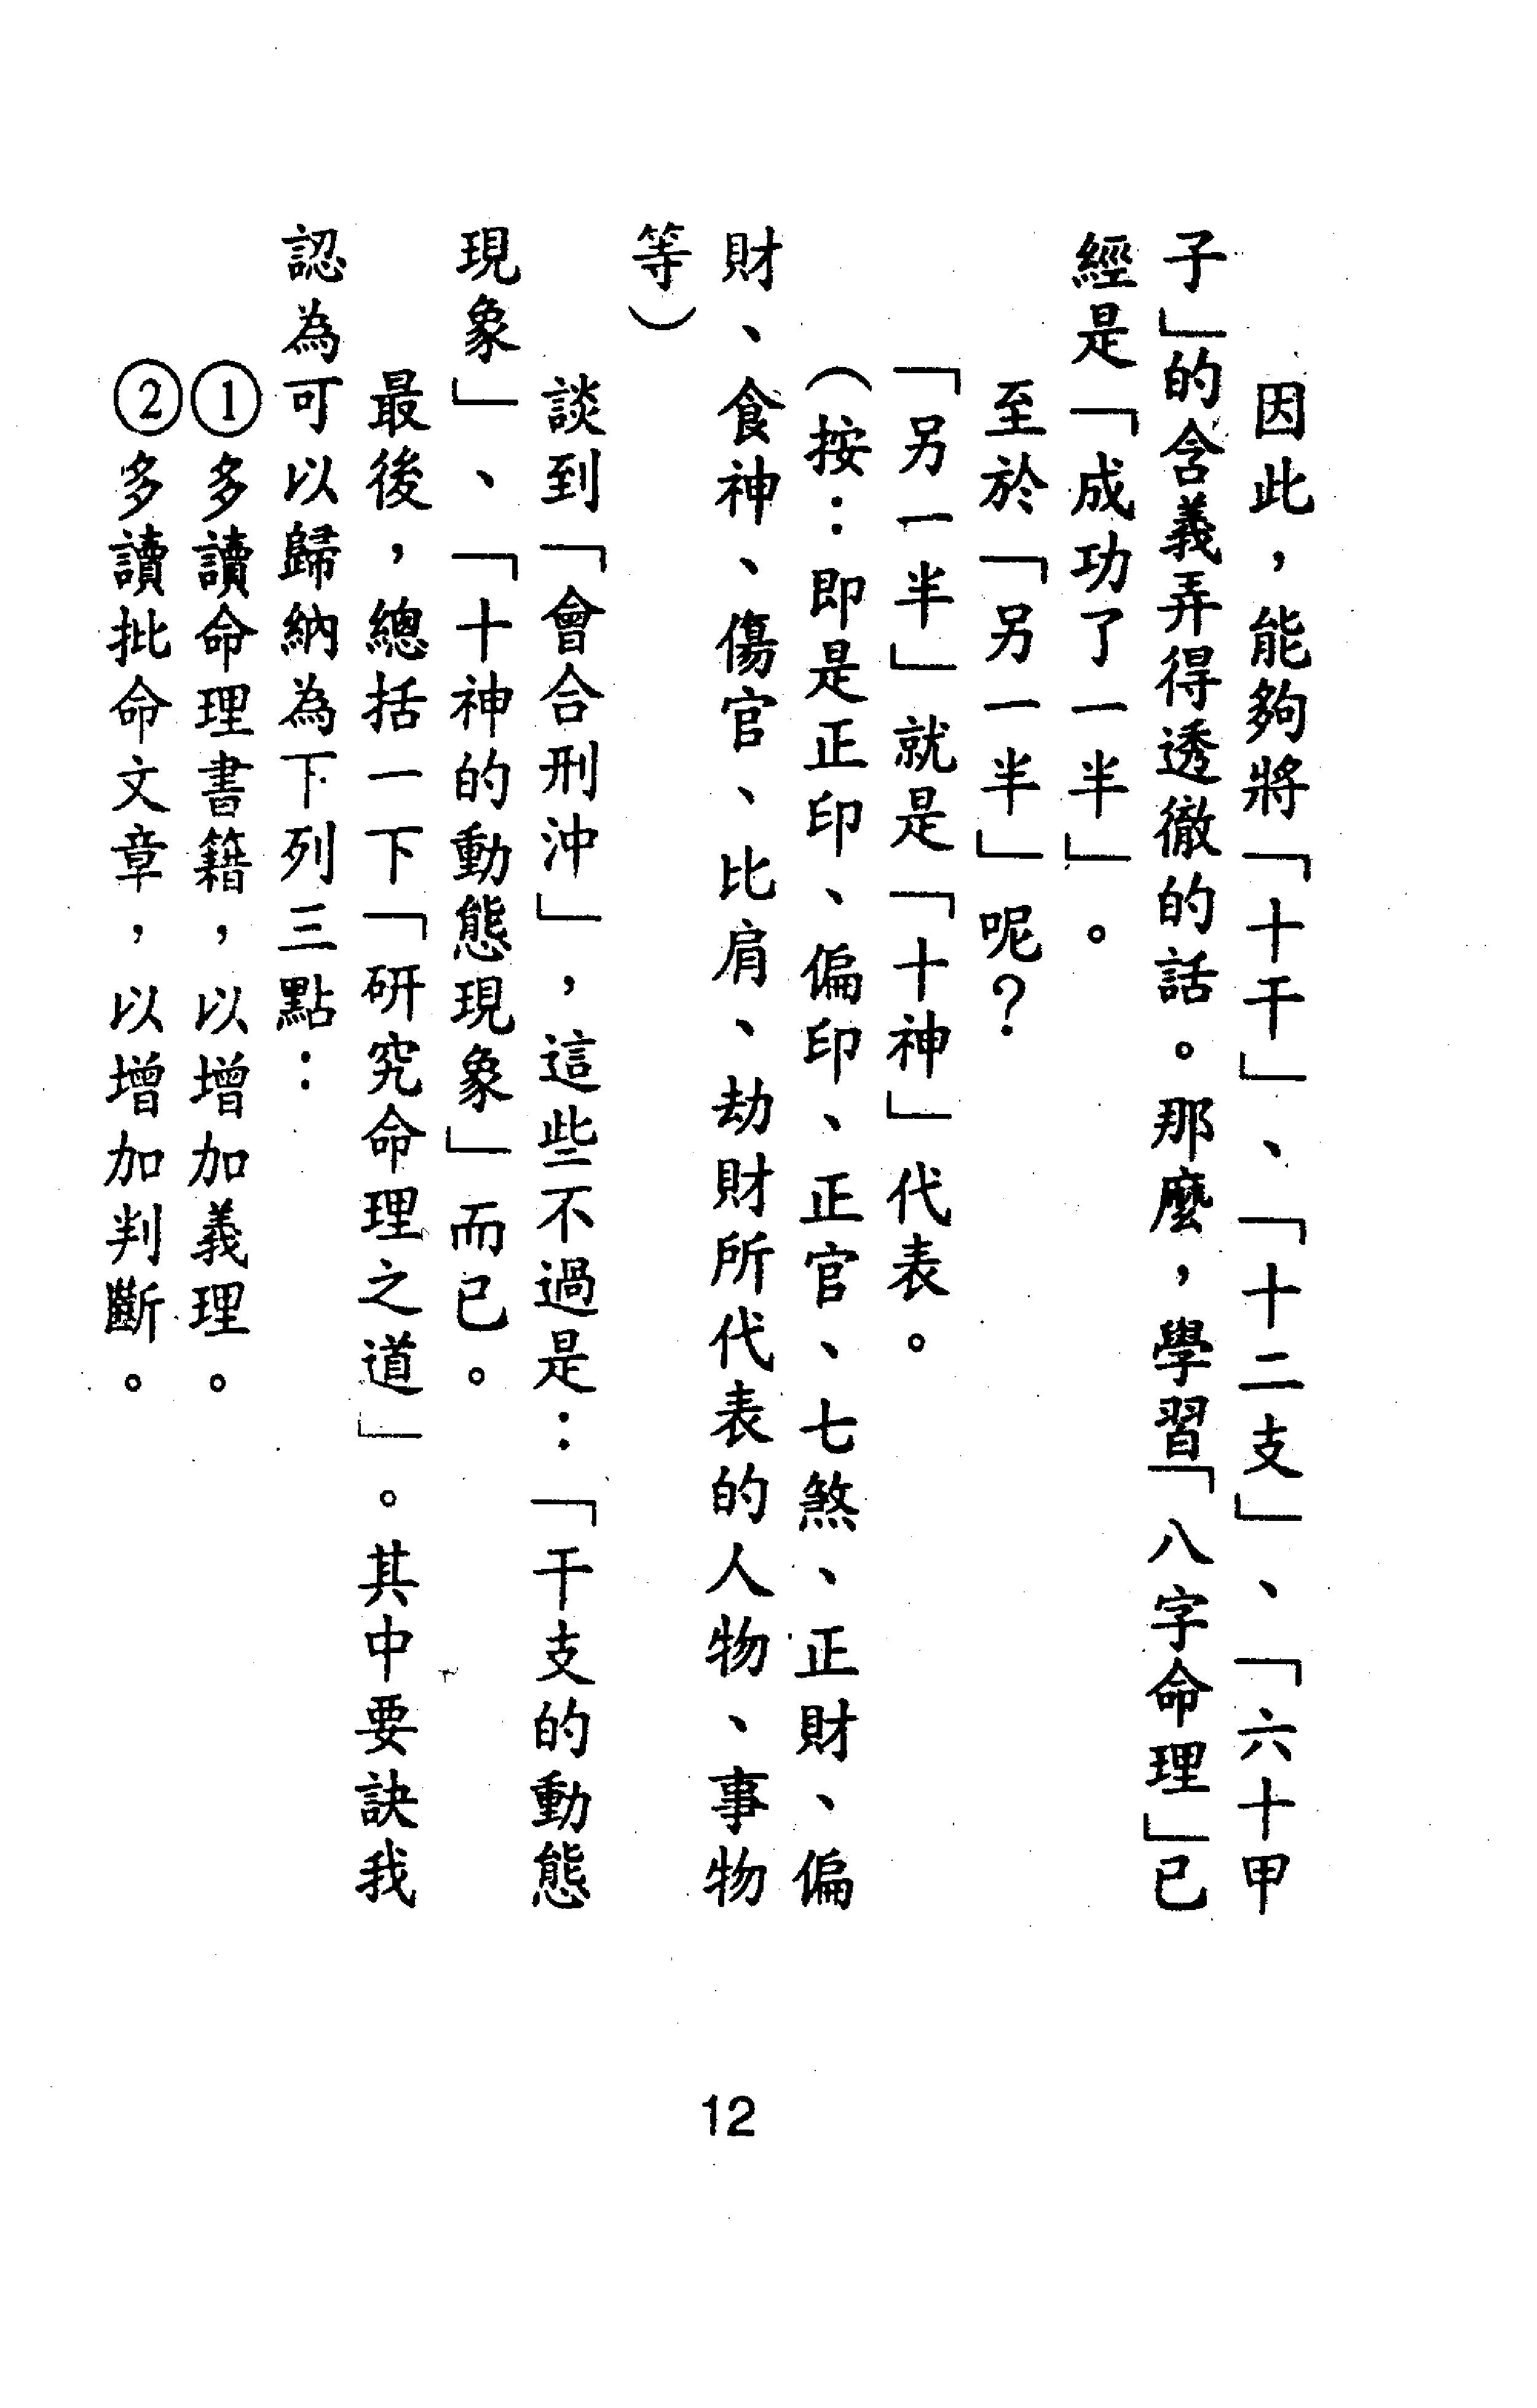 因此，能夠將「十干」、「十二支」、「六十甲
子」的含義弄得透徹的話。那麼，學習「八字命理」已
經是「成功了一半」。
至於「另一半」呢？
「另一半」就是「十神」代表。
（按：即是正印、偏印、正官、七煞、正財、偏
財、食神、傷官、比肩、劫財所代表的人物、事物
等）
談到「會合刑沖」，這些不過是：「干支的動態
現象」、「十神的動態現象」而已。
最後，總括一下「研究命理之道」。其中要訣我
認為可以歸納為下列三點：
①多讀命理書籍，以增加義理。
②多讀批命文章，以增加判斷。
12